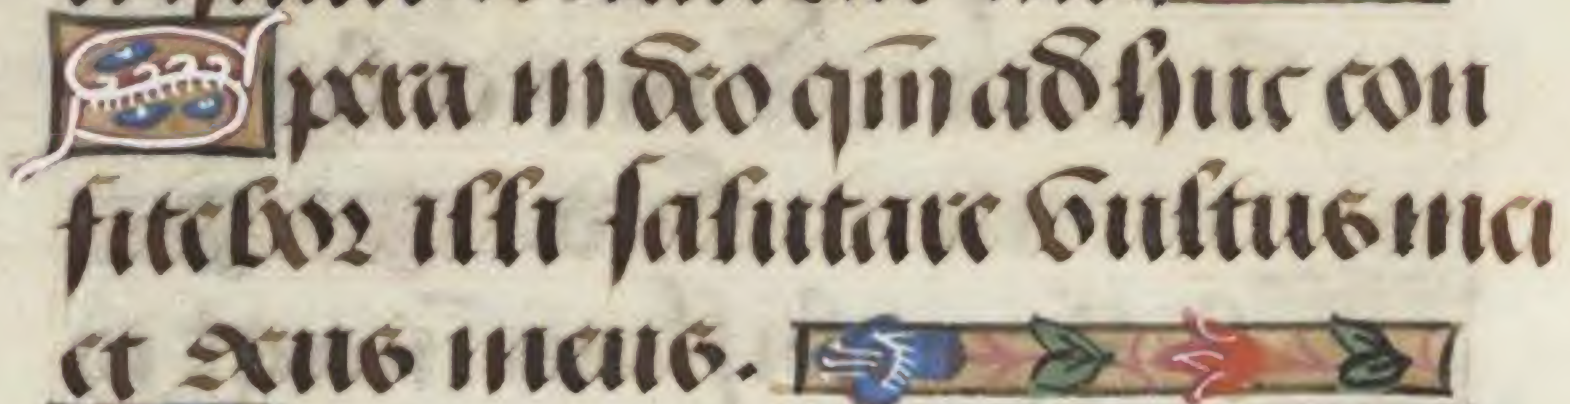 Spera in deo qm̄ adhuc con
fitebor illi salutare vultus mei
et deus meus.